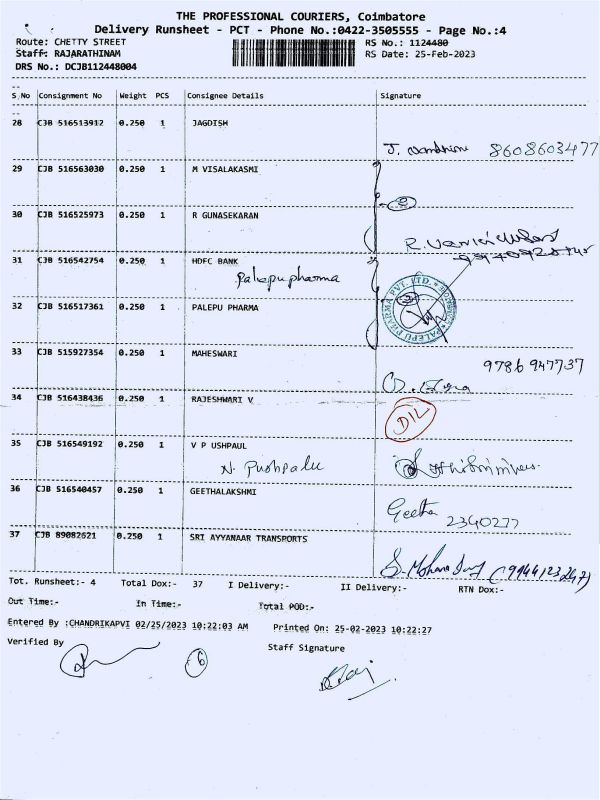 THE PROFESSIONAL COURIERS, Coimbatore
Delivery Runsheet - PCT - Phone No.:0422-3505555 - Page No.:4
Route: CHETTY STREET RS No.: 1124480
Staff: RAJARATHINAM RS Date: 25-Feb-2023
DRS No.: DCJB112448004
S No Consignment No Weight PCS Consignee Details Signature
28 CJB 516513912 0.250 1 JAGDISH
8608603477
29 CJB 516563030 0.250 1 M VISALAKASMI
2
30 CJB 516525973 0.250 1 R GUNASEKARAN
31 CJB 516542754 0.250 1 HDFC BANK
Palepu pharma
32 CJB 516517361 0.250 1 PALEPU PHARMA
PALEPU PHARMA PVT. LTD.
33 CJB 515927354 0.250 1 MAHESWARI
9786 947737
34 CJB 516438436 0.250 1 RAJESHWARI V
D/L
35 CJB 516549192 0.250 1 V P USHPAUL
N. Pushpalu
36 CJB 516540457 0.250 1 GEETHALAKSHMI
Geetha
2340277
37 CJB 89082621 0.250 1 SRI AYYANAAR TRANSPORTS
Tot. Runsheet:- 4 Total Dox:- 37 I Delivery:- II Delivery:- RTN Dox:-
Out Time:- In Time:- Total POD:-
Entered By :CHANDRIKAPVI 02/25/2023 10:22:03 AM Printed On: 25-02-2023 10:22:27
Verified By Staff Signature
6